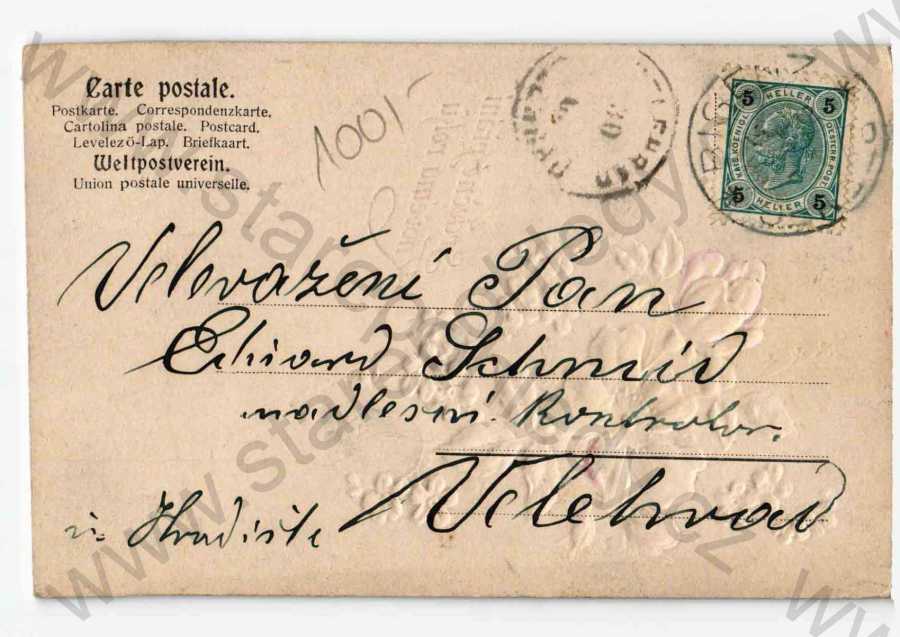 Carte postale.
Postkarte. Correspondenzkarte.
Cartolina postale. Postcard.
Levelező-Lap. Briefkaart.
Weltpostverein.
Union postale universelle.
100,-
5 HELLER 5
KAIS. KOENIGL. OESTERR. POST.
5 HELLER 5
Velevažení Pan
Eduard Schmid
nadlesní Kontrolor.
Velehrad
u Hradiště
www.starepohledy.cz